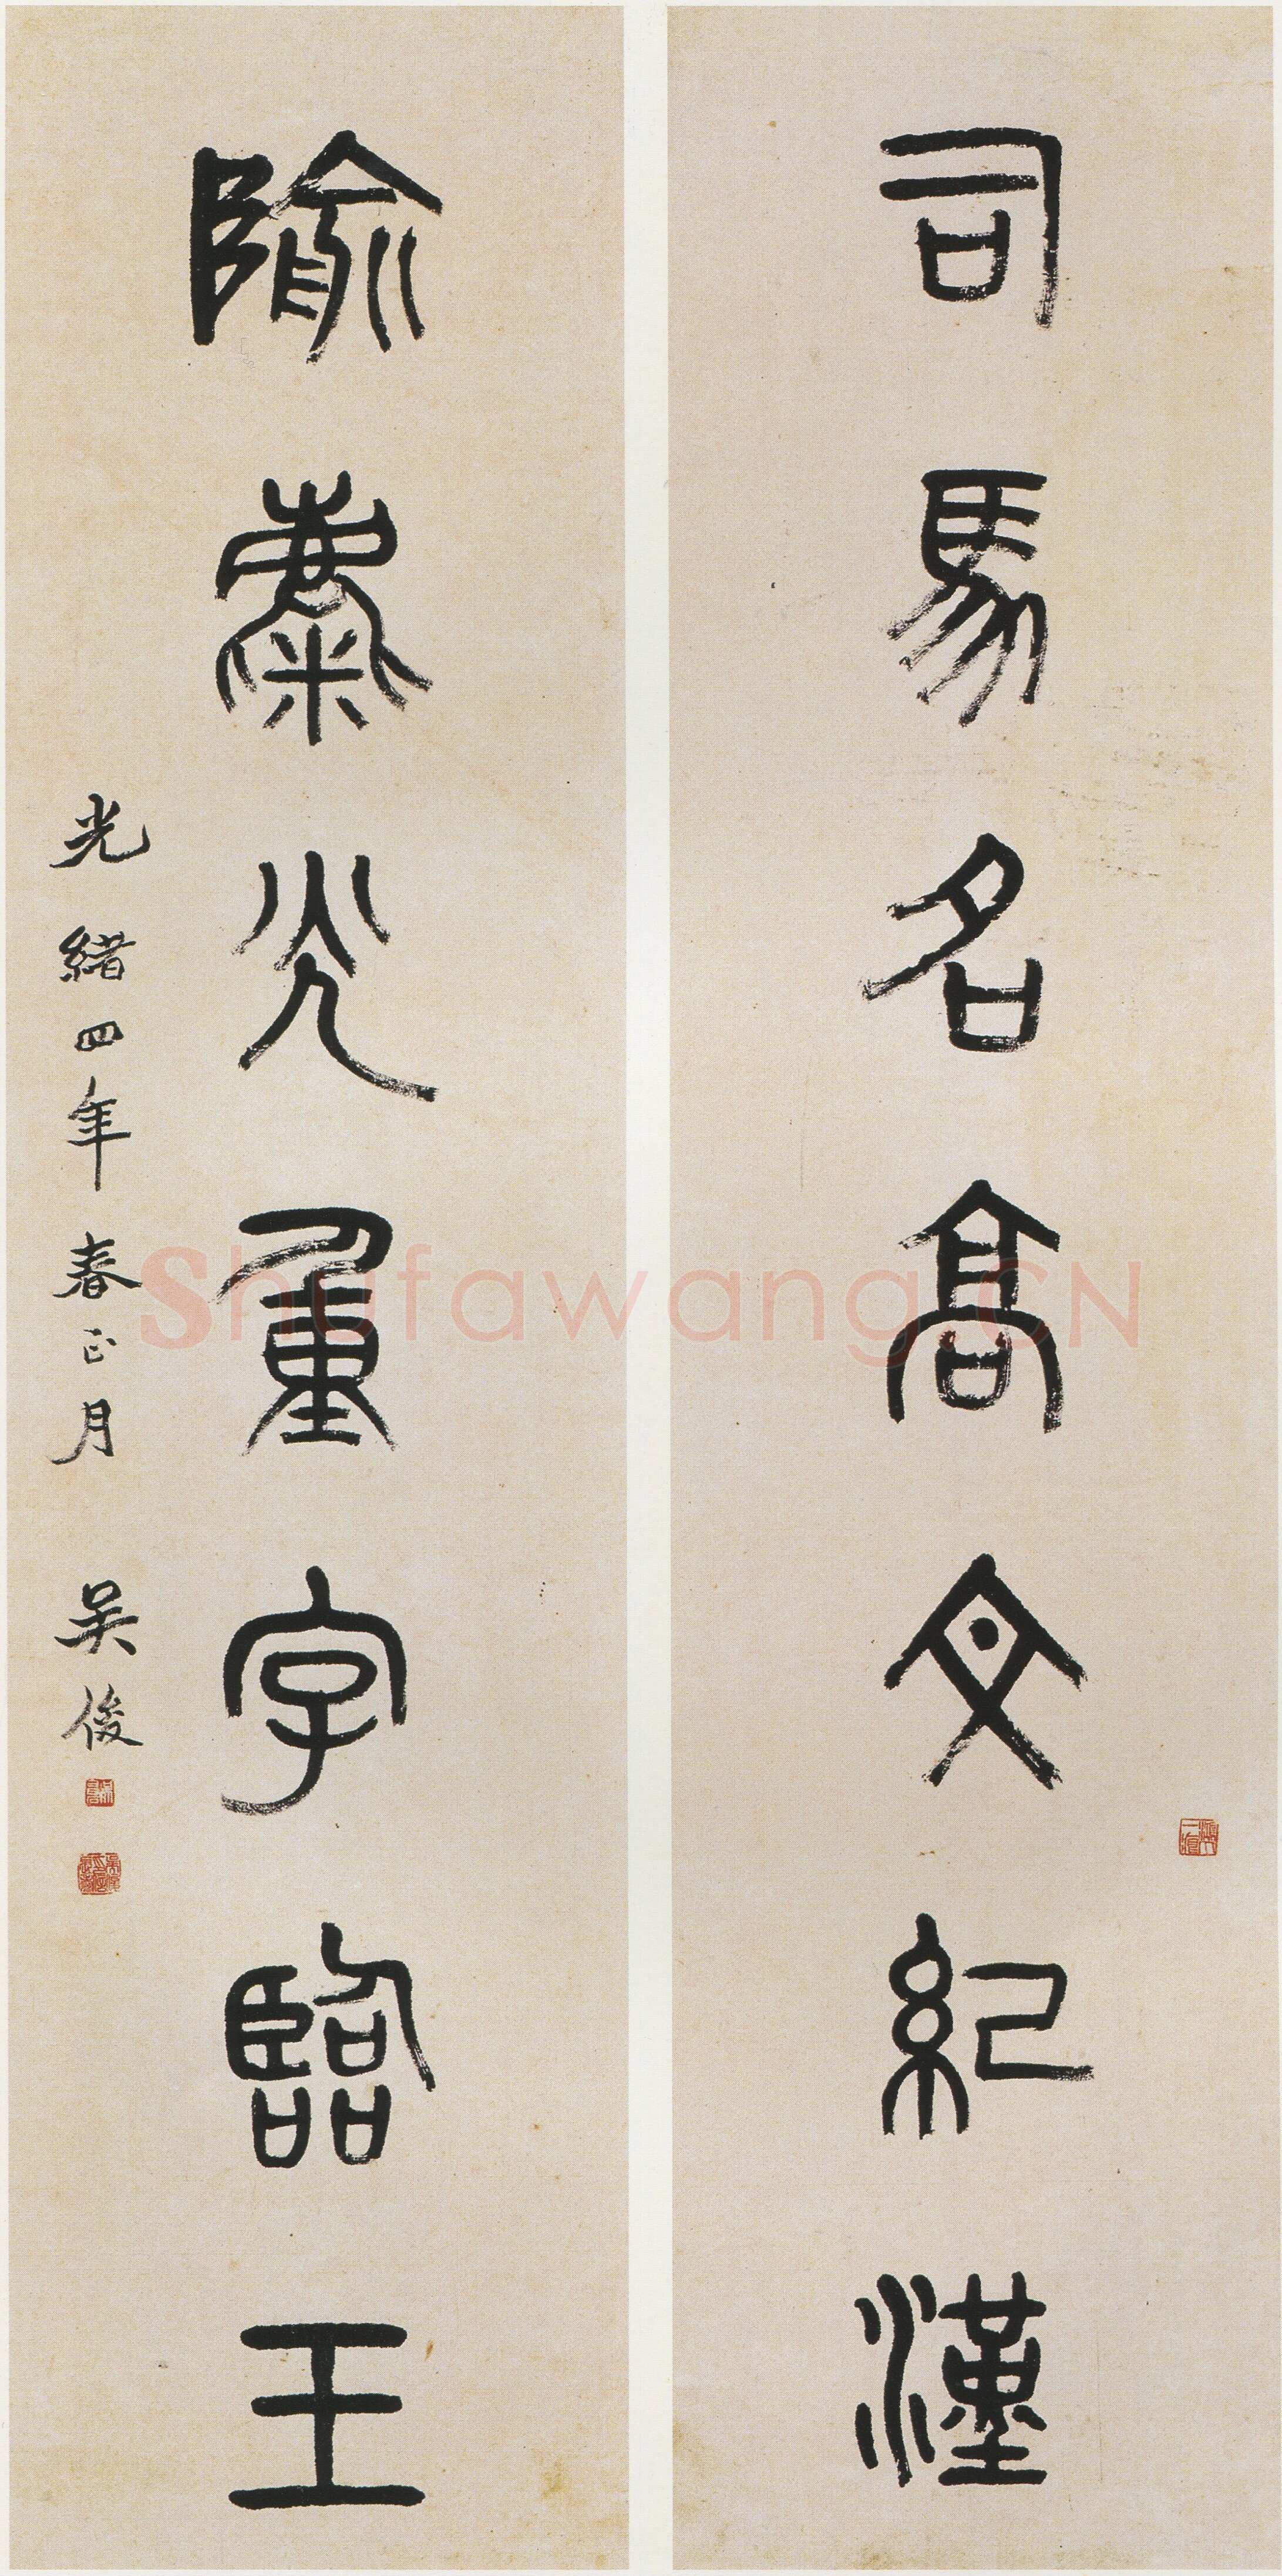 司馬名高文紀漢
隃麋光重字臨王
光緒四年春正月 吳俊
Shufawang.CN